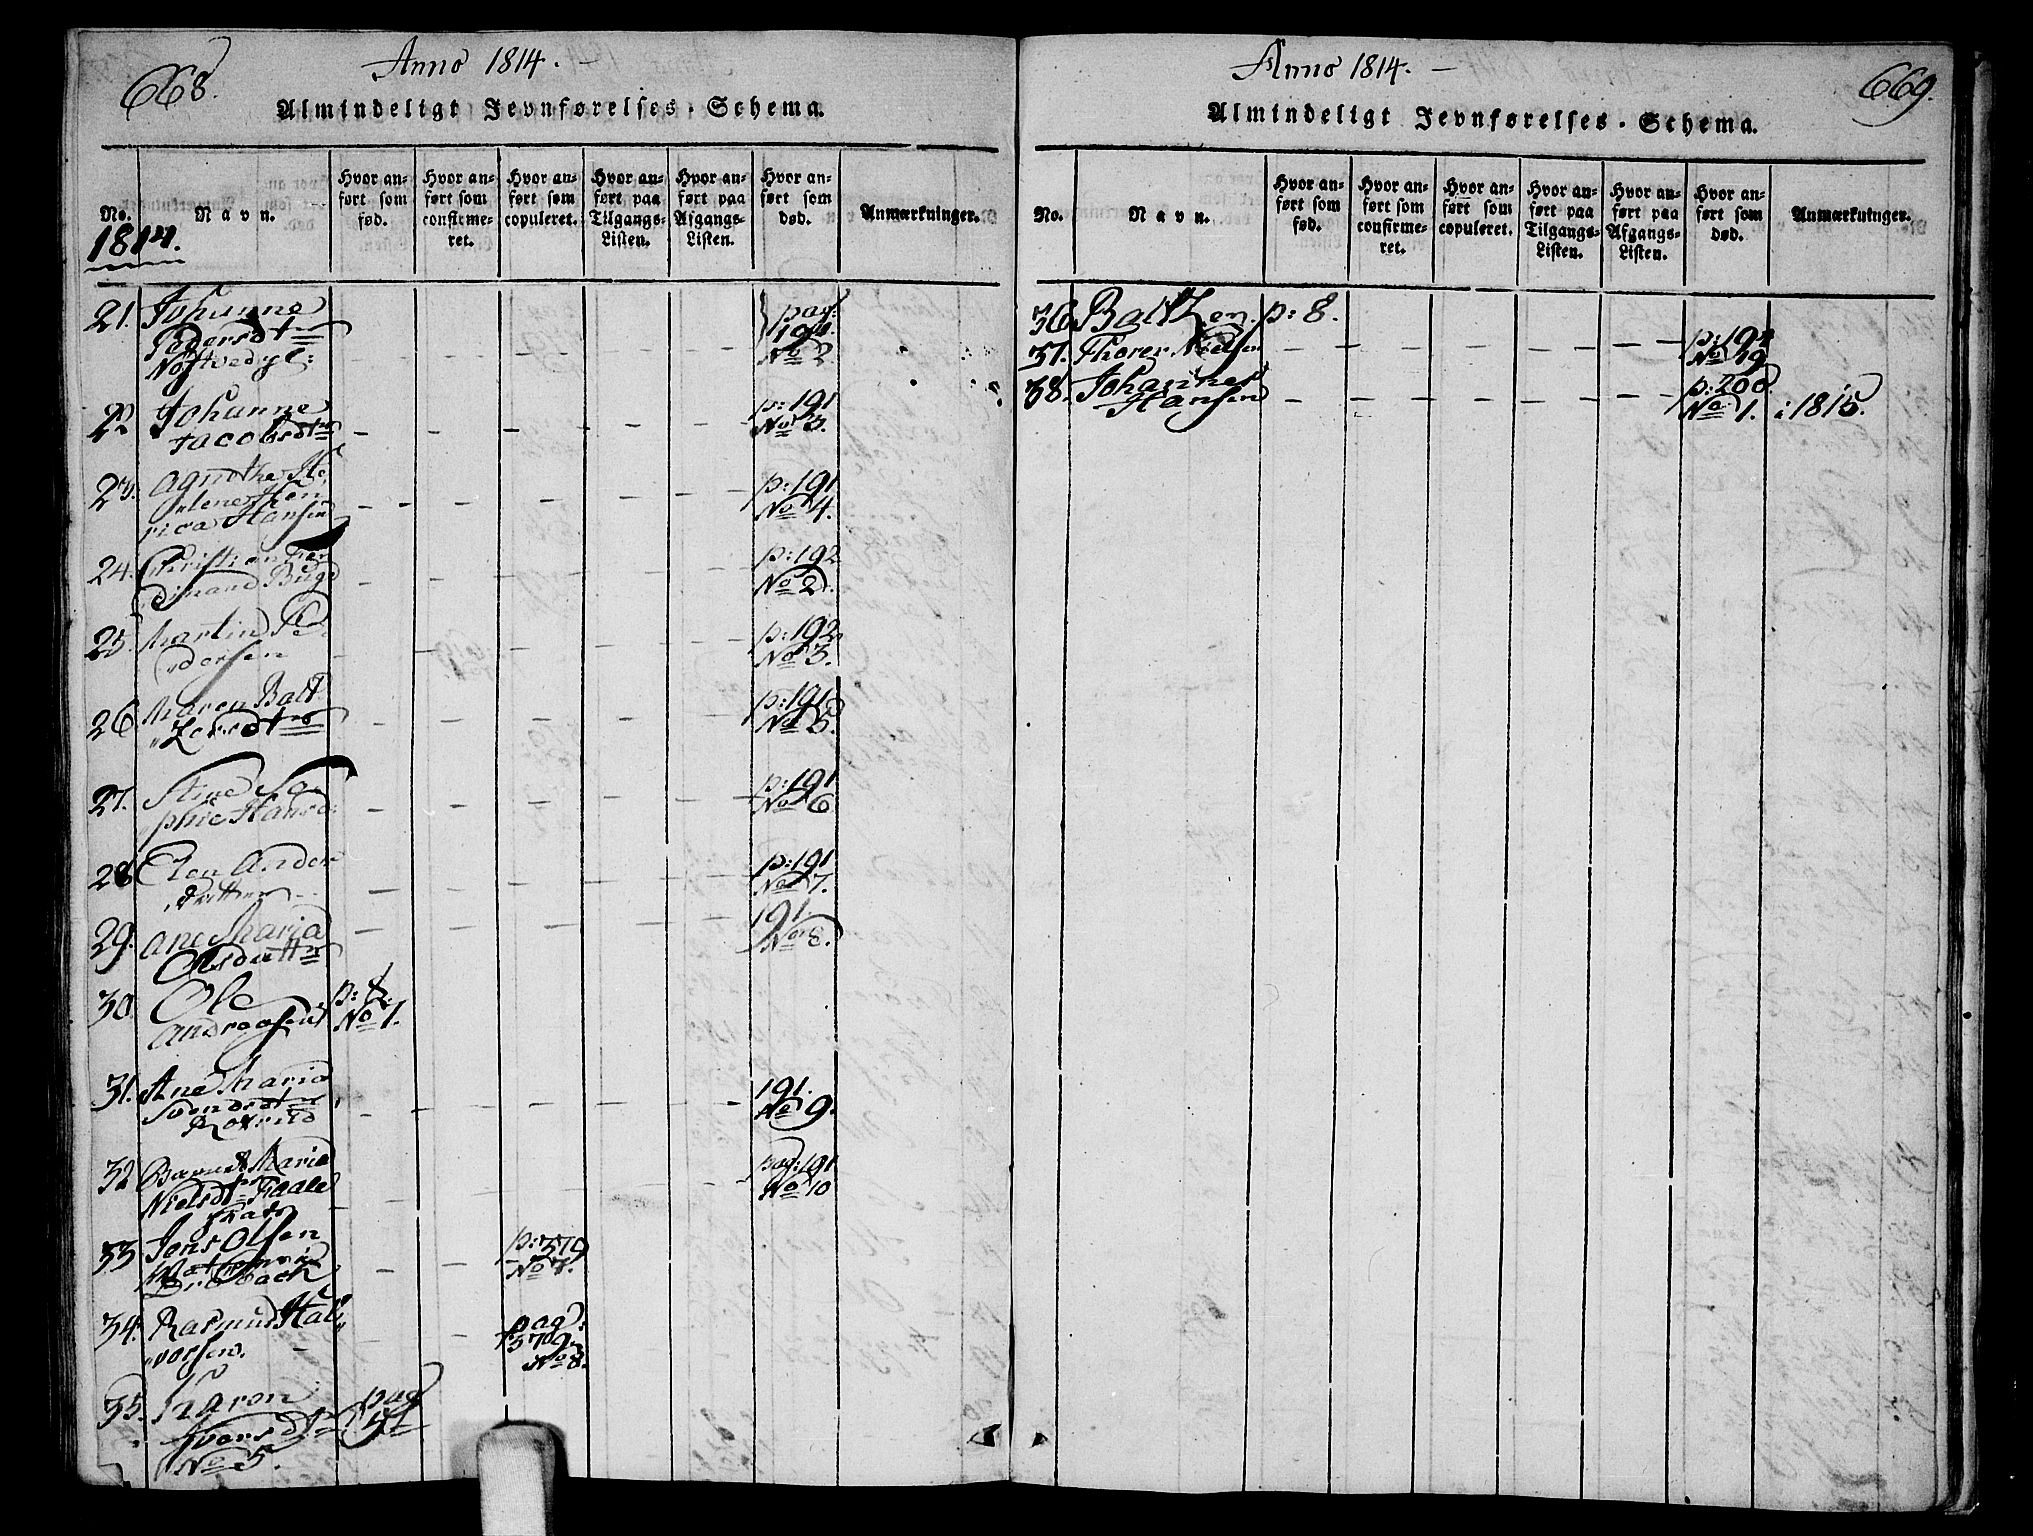 668.
Anno 1814. -
Almindeligt Jevnførelses-Schema.
No. Navn. Hvor anført som fød. Hvor anført som confirmeret. Hvor anført som copuleret. Hvor anført paa Tilgangs-Listen. Hvor anført paa Afgangs-Listen. Hvor anført som død. Anmærkninger.
1814.
21. Johanne pag:
Pedersdtr 191.
No 2.
22 Johanne p: 191
Jacobsdtr No 3.
23. Agnethe p: 191
Hansen No 4.
24. Christian Fer p: 192
dinand No 2.
25. Martin Pe p: 192
dersen No 3.
26 Maren Balt p: 191
zersdtr No 5.
27. Stine So p: 191
phie Hansd: No 6
28 Elen Anders p: 191
datter No 7.
29. Ane Maria 191.
Olsdattr No 8.
30 Ole p: 8.
Andreasen No 1.
31. Ane Maria 191.
Svendsdtr No 9.
32 Maria pag: 191
Nielsdtr No 10
33 Jens Olsen p: 379
No 7.
34. Rasmus Hal pag:
vorsen. 379.
No 8.
35. Karen pag
Iversdtr 51
No 5.
Anno 1814. -
669.
Almindeligt Jevnførelses-Schema.
No. Navn. Hvor anført som fød. Hvor anført som confirmeret. Hvor anført som copuleret. Hvor anført paa Tilgangs-Listen. Hvor anført paa Afgangs-Listen. Hvor anført som død. Anmærkninger.
36 Baltzer. p: 8.
37. Thorer Nielsen p: 194
No 19
38. Johannes p: 200
Hansen No 1. i 1815.